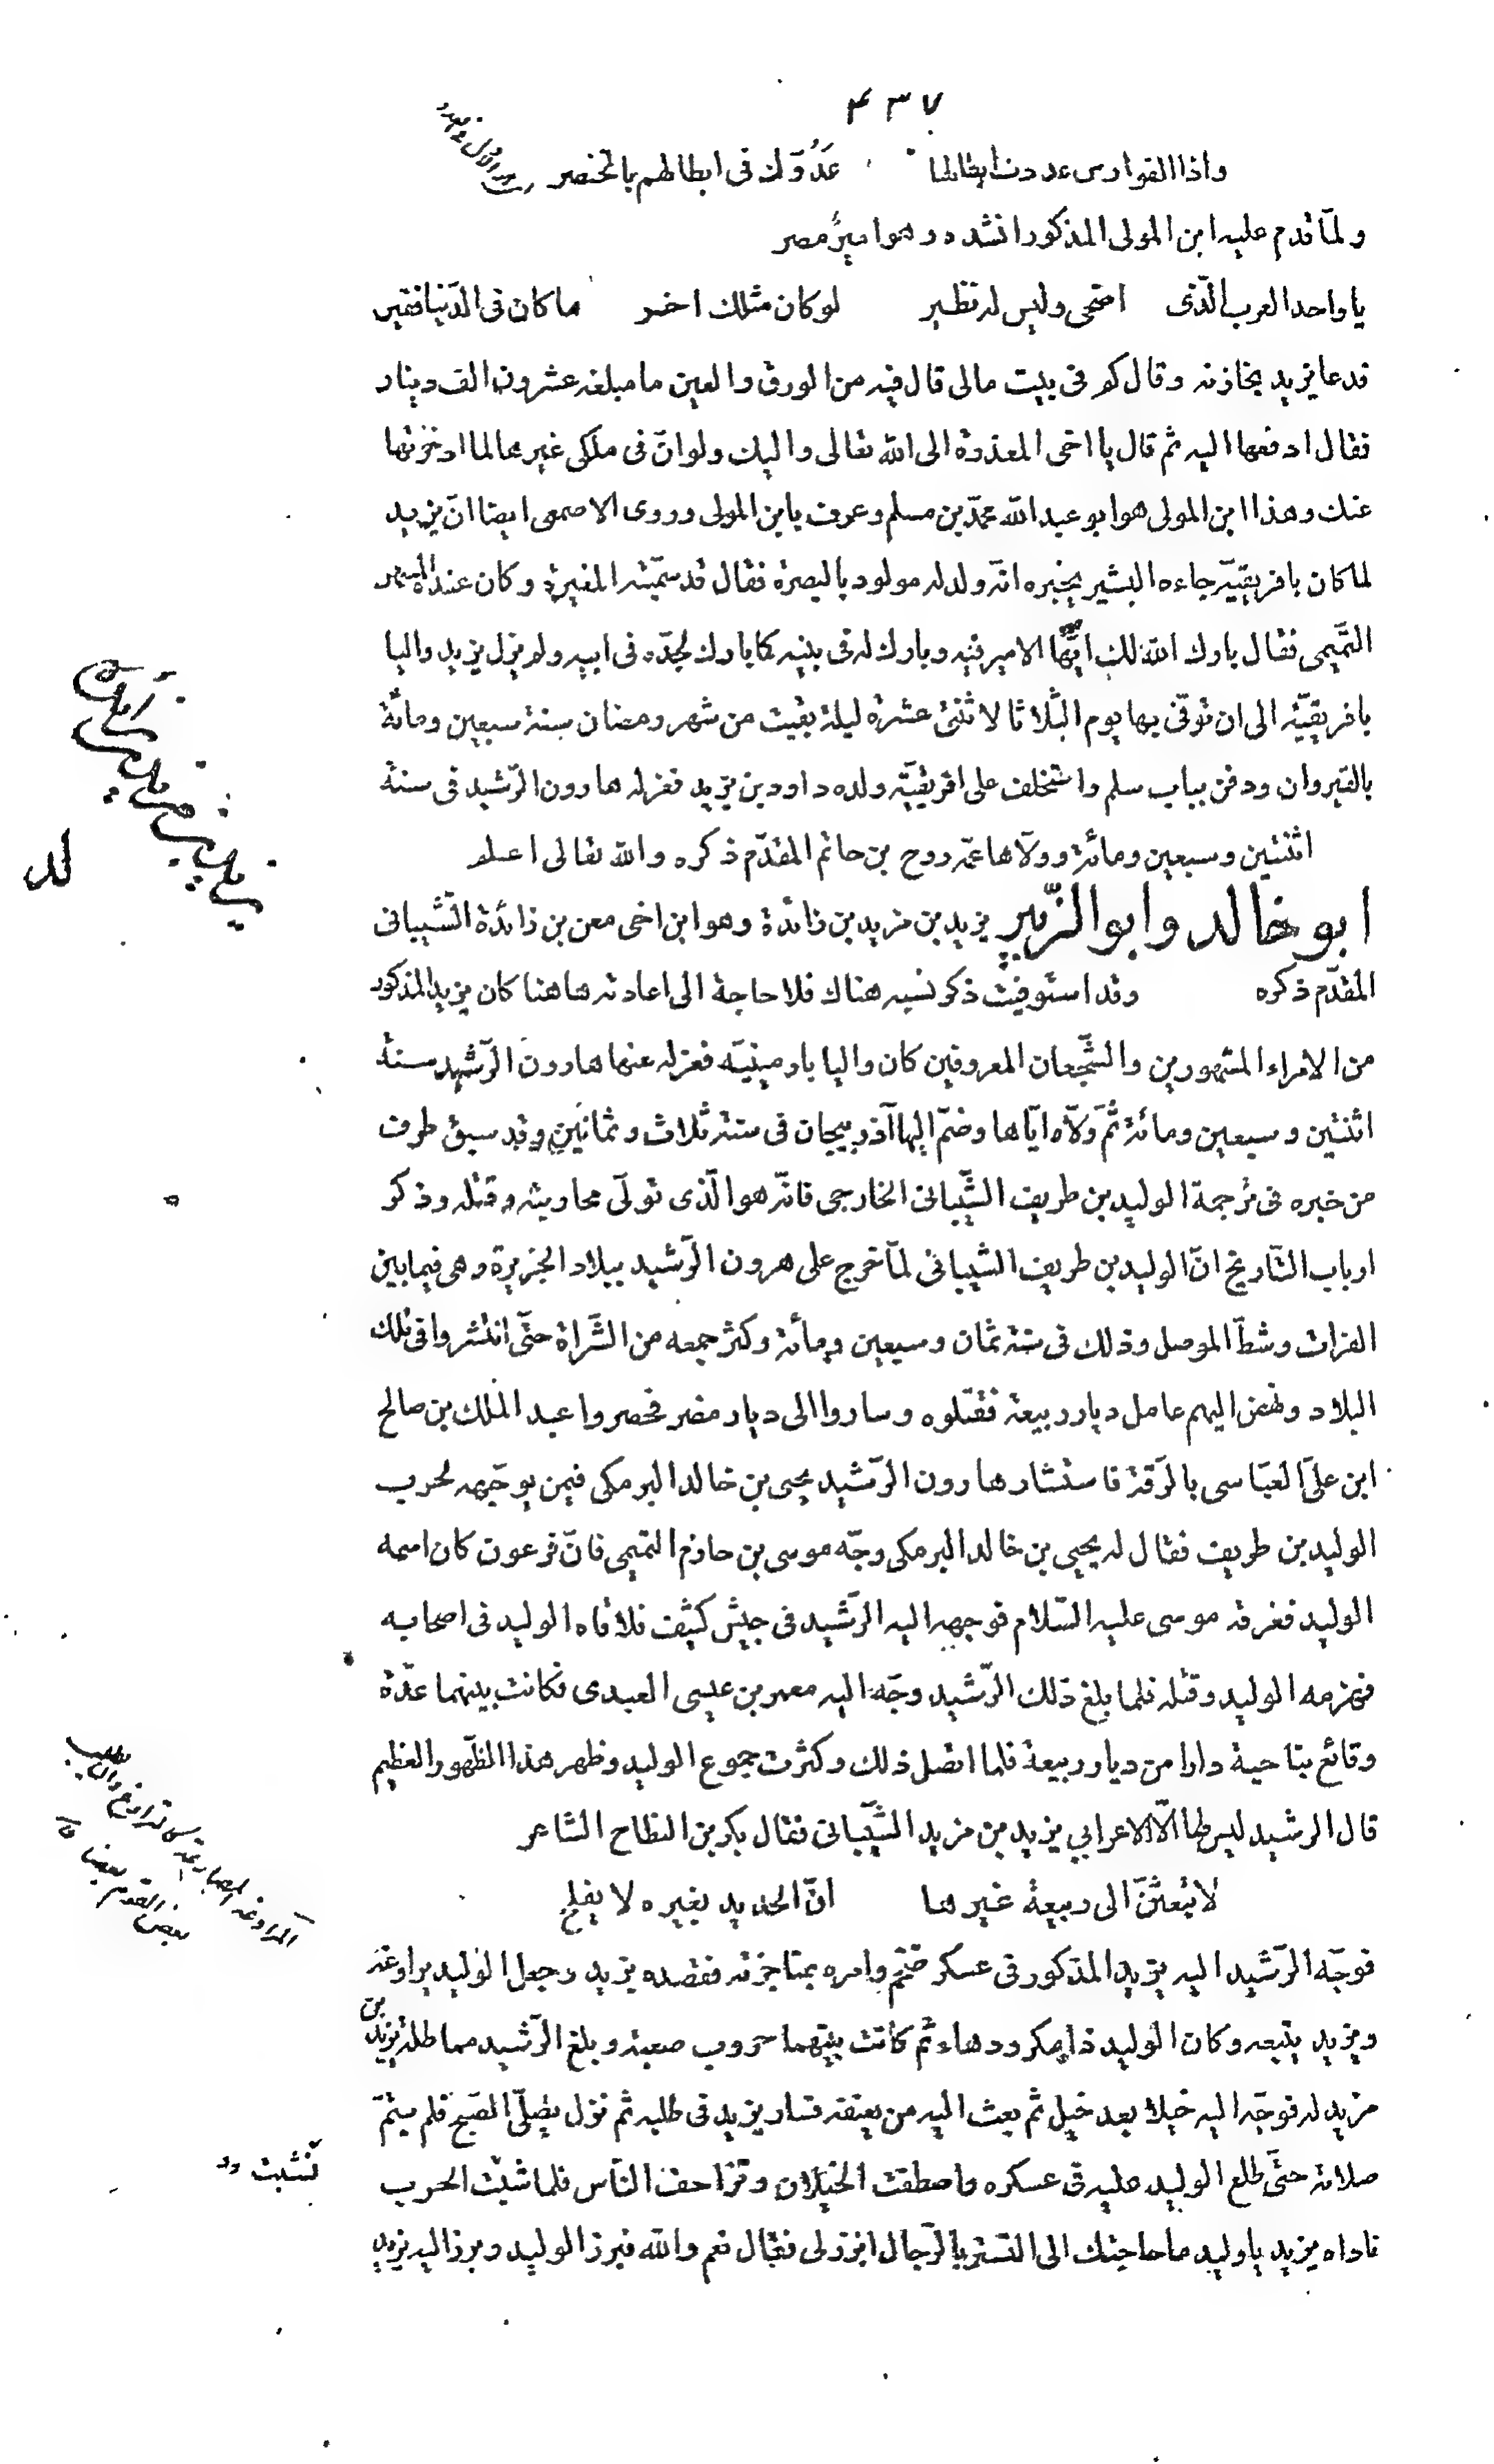 ٤٣٧
واذا الفوارس عددت ابطالها عدّوك فى ابطالهم بالخنصر
ولمّا قدم عليه ابن المولى المذكور انشده وهو اميرُ مصر
يا واحد العرب الّذى اضحى وليس له نظير لو كان مثلك اخر ما كان فى الدّنيا فقير
فدعا يزيد بخازنه وقال كم فى بيت مالى قال فيه من الورق والعين ما مبلغه عشرون الف دينار
فقال ادفعها اليه ثم قال يا اخى المعذرة الى الله تعالى واليك ولو انّ فى ملكى غيرها لما ادخرتها
عنك وهذا ابن المولى هو ابو عبد الله محمّد بن مسلم وعرف بابن المولى وروى الاصمعى ايضا انّ يزيد
لما كان بافريقيّة جاءه البشير يخبره انّه ولد له مولود بالبصرة فقال قد سمّيته المغيرة وكان عنده المسهر
التّميمى فقال بارك الله لك ايّها الامير فيه وبارك له فى بنيه كما بارك لجدّه فى ابيه ولم يزل يزيد واليا
بافريقيّة الى ان توفّى بها يوم الثّلاثا لاثنتى عشرة ليلة بقيت من شهر رمضان سنة سبعين ومائة
بالقيروان ودفن بباب سلم واستخلف على افريقيّة ولده داود بن يزيد فعزله هارون الرّشيد فى سنة
اثنتين وسبعين ومائة وولّاها عمّه روح بن حاتم المقدّم ذكره والله تعالى اعلم
ابو خالد وابو الزّبير يزيد بن مزيد بن زائدة وهو ابن اخى معن بن زائدة الشّيبانى
المقدّم ذكره وقد استوفيت ذكر نسبه هناك فلا حاجة الى اعادته هاهنا كان يزيد المذكور
من الامراء المشهورين والشّجعان المعروفين كان واليا بارمينيّه فعزله عنها هارون الرّشيد سنة
اثنتين وسبعين ومائة ثمّ ولّاه ايّاها وضمّ اليها آذربيجان فى سنة ثلاث وثمانين وقد سبق طرف
من خبره فى ترجمة الوليد بن طريف الشّيبانى الخارجى فانّه هو الّذى تولّى محاربته وقتله وذكر
ارباب التّاريخ انّ الوليد بن طريف الشيبانى لمّا خرج على هرون الرّشيد ببلاد الجزيرة وهى فيما بين
الفرات وشطّ الموصل وذلك فى سنة ثمان وسبعين ومائة وكثر جمعه من الشّراة حتّى انتشروا فى تلك
البلاد ونهض اليهم عامل ديار ربيعة فقتلوه وساروا الى ديار مضر فحصروا عبد الملك بن صالح
ابن علىّ العبّاسى بالرّقة فاستشار هارون الرّشيد يحيى بن خالد البرمكى فيمن يوجّهه لحرب
الوليد بن طريف فقال له يحيى بن خالد البرمكى وجّه موسى بن حازم التميمى فانّ فرعون كان اسمه
الوليد فغرقه موسى عليه السّلام فوجهه اليه الرّشيد فى جيش كثيف فلاقاه الوليد فى اصحابه
فهزمه الوليد وقتله فلما بلغ ذلك الرّشيد وجّه اليه معمر بن عيسى العبدى فكانت بينهما عدّة
وقائع بناحية دارا من ديار ربيعة فلما اتصل ذلك وكثرت جموع الوليد وظهر هذا الظّهور العظيم
قال الرشيد ليس لها الّا الاعرابي يزيد بن مزيد الشّيبانى فقال بكر بن النطاح الشّاعر
لا تبعثنّ الى ربيعة غيرها انّ الحديد بغيره لا يفلح
فوجّه الرّشيد اليه يزيد المذكور فى عسكر ضخم وامره بمناجزته فقصده يزيد وجعل الوليد يراوغه
ويزيد يتبعه وكان الوليد ذا مكر ودهاء ثم كانت بينهما حروب صعبة وبلغ الرّشيد مماطلة يزيد بن
مزيد له فوجّه اليه خيلا بعد خيل ثم بعث اليه من يعنفه فسار يزيد فى طلبه ثم نزل يصلّى الصّبح فلم يتمّ
صلاته حتّى طلع الوليد عليه فى عسكره واصطفت الخيلان وتزاحف النّاس فلما شبّت الحرب
ناداه يزيد يا وليد ما حاجتك الى التّستر بالرّجال ابرز لى فقال نعم والله فبرز الوليد وبرز اليه يزيد
نشبت